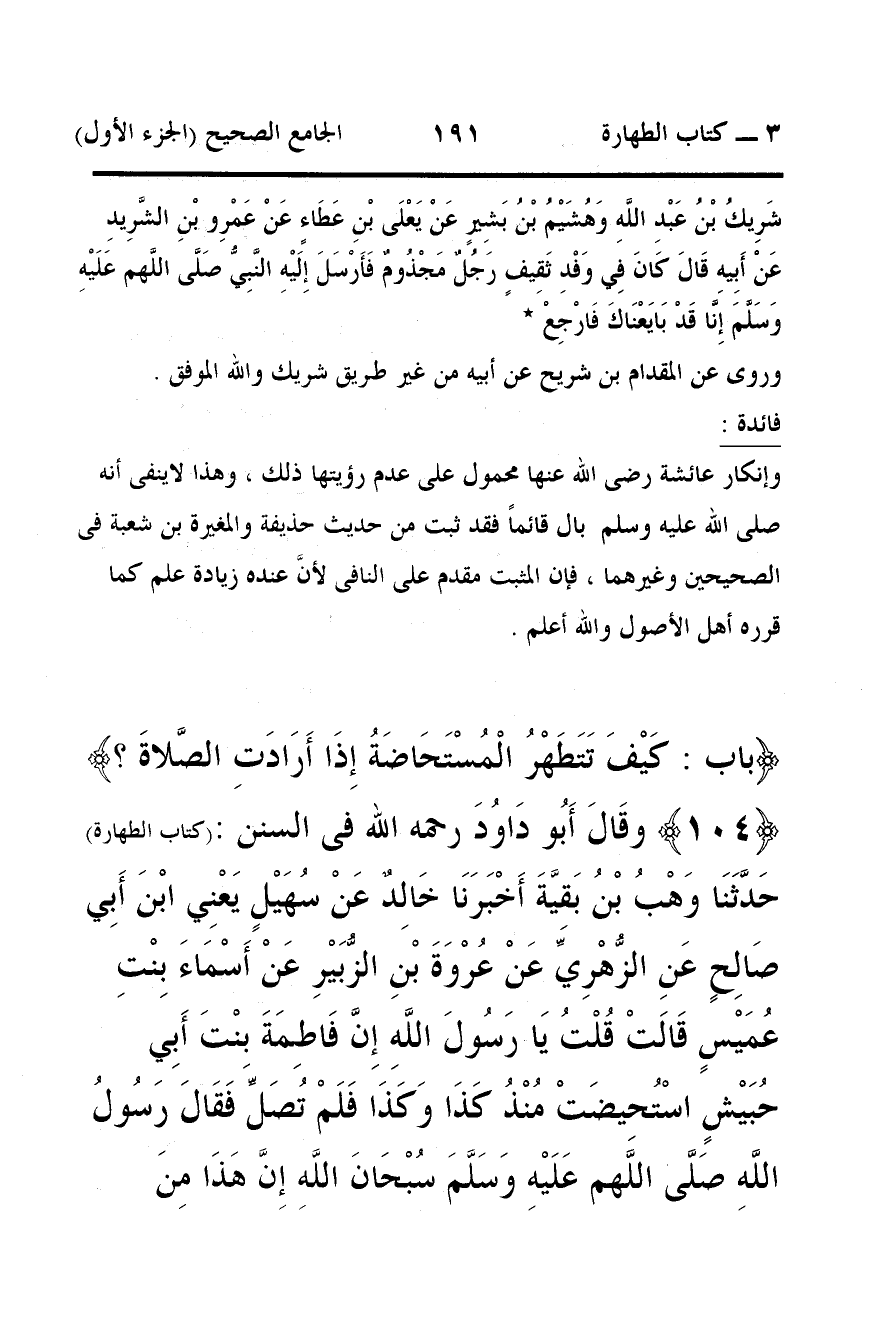 ٣ ــ كتاب الطهارة ١٩١ الجامع الصحيح (الجزء الأول)
شَرِيكُ بْنُ عَبْدِ اللَّهِ وَهُشَيْمُ بْنُ بَشِيرٍ عَنْ يَعْلَى بْنِ عَطَاءٍ عَنْ عَمْرِو بْنِ الشَّرِيدِ
عَنْ أَبِيهِ قَالَ كَانَ فِي وَفْدِ ثَقِيفٍ رَجُلٌ مَجْذُومٌ فَأَرْسَلَ إِلَيْهِ النَّبِيُّ صَلَّى اللَّهم عَلَيْهِ
وَسَلَّمَ إِنَّا قَدْ بَايَعْنَاكَ فَارْجِعْ *
وروى عن المقدام بن شريح عن أبيه من غير طريق شريك والله الموفق .
فائدة :
وإنكار عائشة رضى الله عنها محمول على عدم رؤيتها ذلك ، وهذا لاينفى أنه
صلى الله عليه وسلم بال قائماً فقد ثبت من حديث حذيفة والمغيرة بن شعبة فى
الصحيحين وغيرهما ، فإن المثبت مقدم على النافى لأنَّ عنده زيادة علم كما
قرره أهل الأصول والله أعلم .
﴿باب : كَيْفَ تَتَطَهْرُ الْمُسْتَحَاضَةُ إِذَا أَرَادَتِ الصَّلاةَ ؟﴾
﴿١٠٤﴾ وقَالَ أَبُو دَاوُدَ رحمه الله فى السنن :(كتاب الطهارة)
حَدَّثَنَا وَهْبُ بْنُ بَقِيَّةَ أَخْبَرَنَا خَالِدٌ عَنْ سُهَيْلٍ يَعْنِي ابْنَ أَبِي
صَالِحٍ عَنِ الزُّهْرِيِّ عَنْ عُرْوَةَ بْنِ الزُّبَيْرِ عَنْ أَسْمَاءَ بِنْتِ
عُمَيْسٍ قَالَتْ قُلْتُ يَا رَسُولَ اللَّهِ إِنَّ فَاطِمَةَ بِنْتَ أَبِي
حُبَيْشٍ اسْتُحِيضَتْ مُنْذُ كَذَا وَكَذَا فَلَمْ تُصَلِّ فَقَالَ رَسُولُ
اللَّهِ صَلَّى اللَّهم عَلَيْهِ وَسَلَّمَ سُبْحَانَ اللَّهِ إِنَّ هَذَا مِنَ